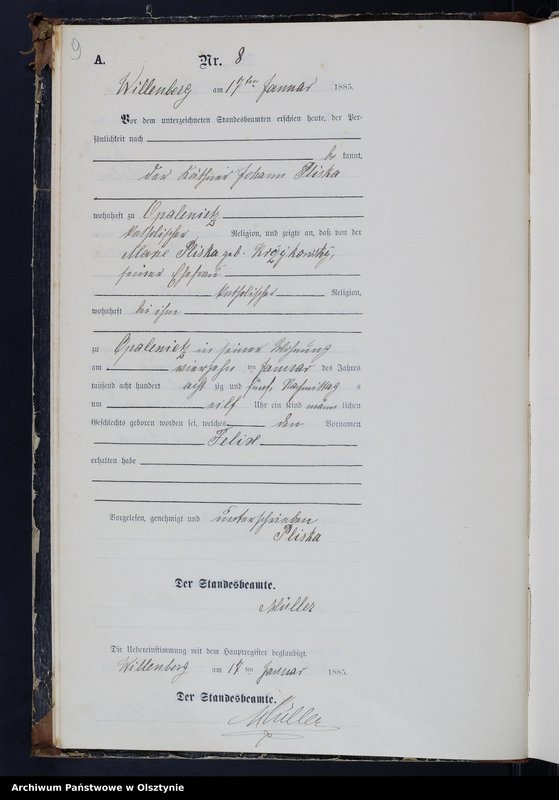 9
A. Nr. 8
Willenberg am 17ten Januar 1885.
Vor dem unterzeichneten Standesbeamten erschien heute, der Per-
sönlichkeit nach
be kannt,
der Käthner Johann Pliska
wohnhaft zu Opalenietz
katholischer Religion, und zeigte an, daß von der
Pliska geb.
seiner Ehefrau
katholischer Religion,
wohnhaft bei ihm
zu Opalenietz in seiner Wohnung
am vierzehn ten Januar des Jahres
tausend acht hundert acht zig und fünf, Nachmittag s
um eilf Uhr ein Kind männ lichen
Geschlechts geboren worden sei, welches den Vornamen
Felix
erhalten habe
Vorgelesen, genehmigt und unterschrieben
Pliska
Der Standesbeamte.
Müller
Die Uebereinstimmung mit dem Hauptregister beglaubigt.
Willenberg am 17 ten Januar 1885.
Der Standesbeamte.
Müller
Archiwum Państwowe w Olsztynie